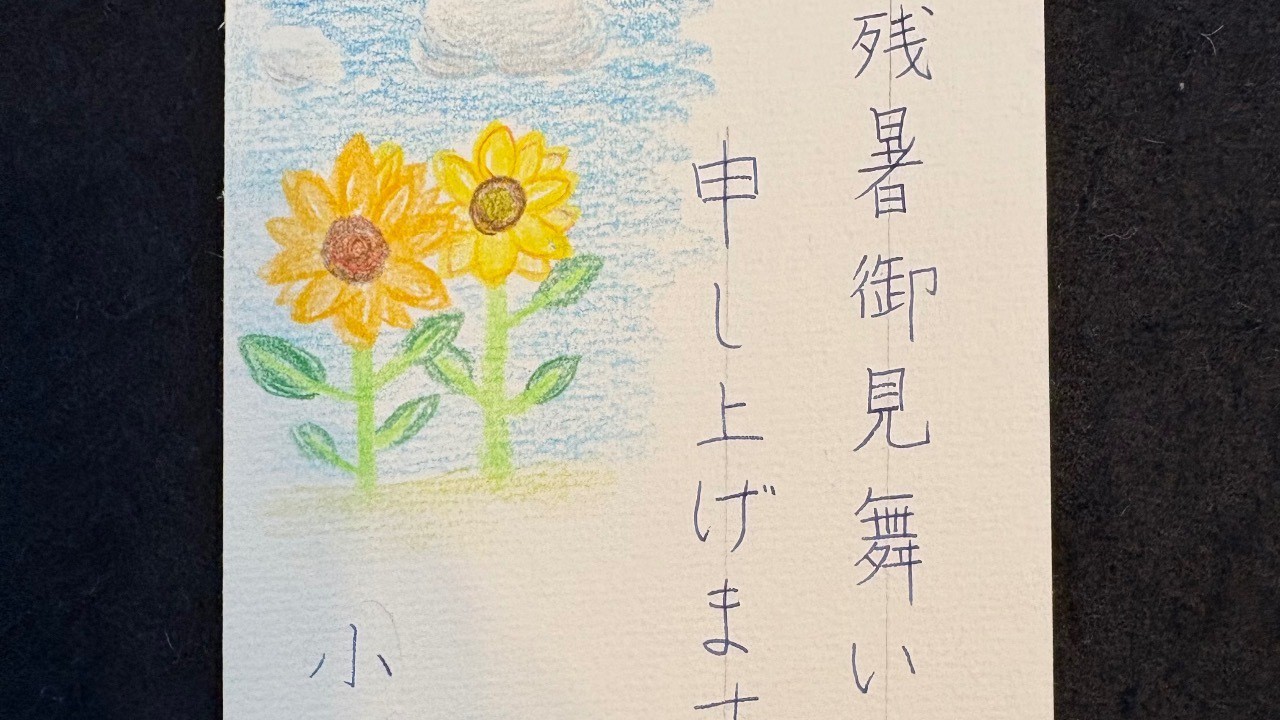 残暑御見舞い
申し上げま
小